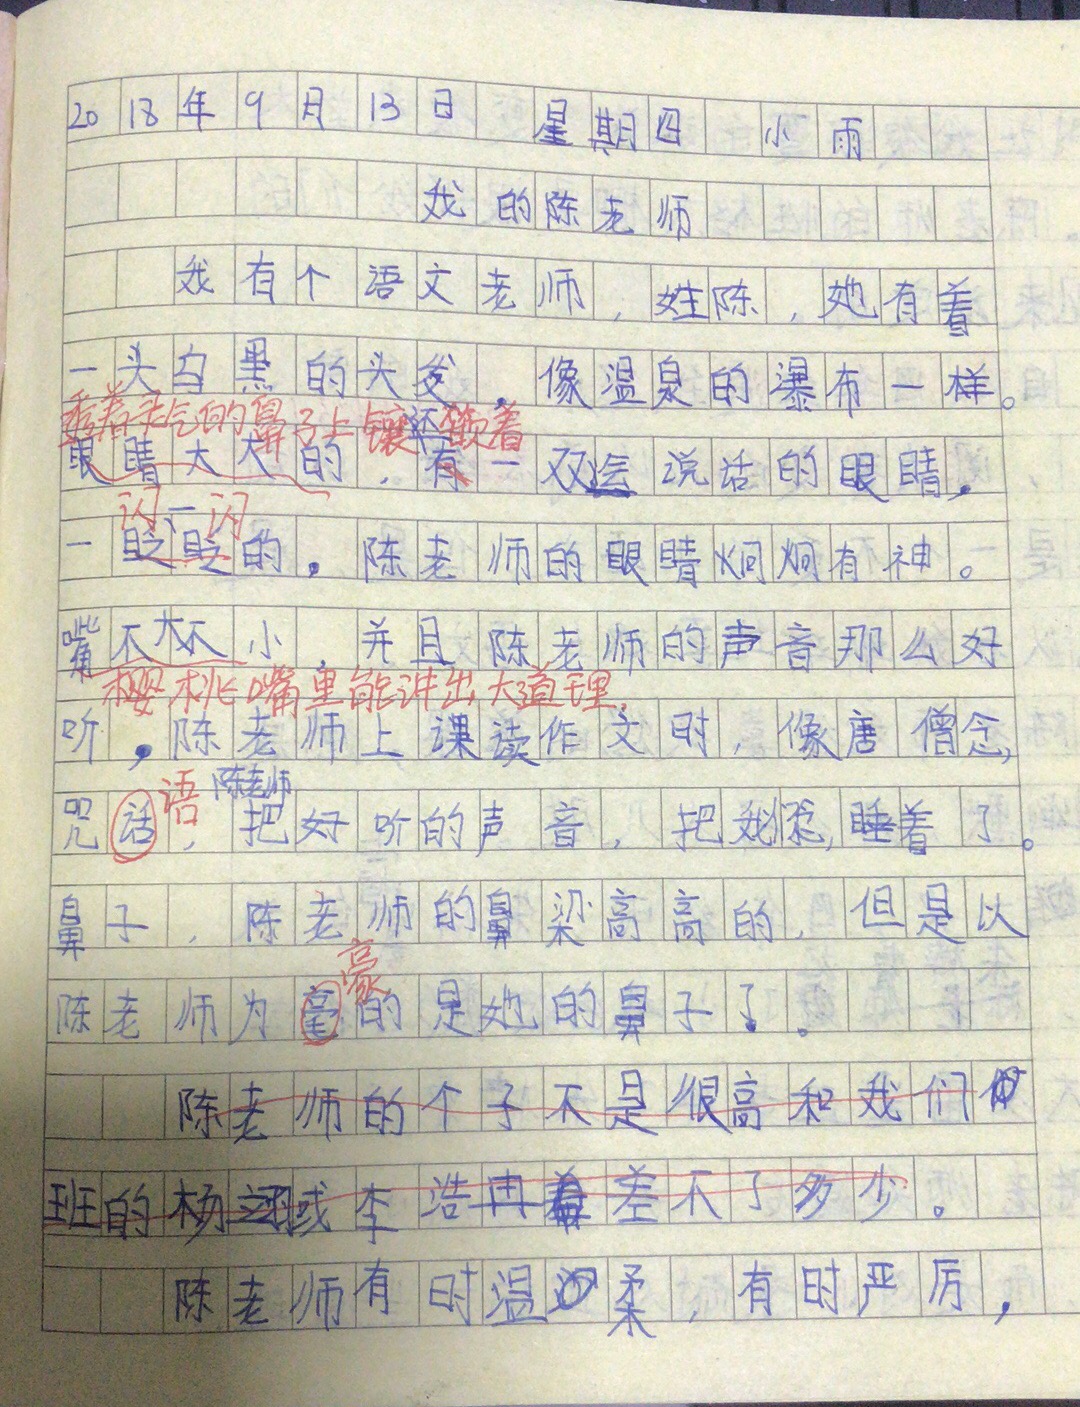 2018年9月13日 星期四 小雨
我的陈老师
我有个语文老师,姓陈,她有着
一头乌黑的头发,像温泉的瀑布一样。
秀着灵气的鼻子上镶还嵌着
眼睛大大的,有一双会说话的眼睛,
闪一闪
一眨眨的。陈老师的眼睛炯炯有神。
嘴不大不小,并且陈老师的声音那么好
樱桃嘴里能讲出大道理,
听,陈老师上课读作文时,像唐僧念,
语 陈老师
咒话,把好听的声音,把我,睡着了。
鼻子,陈老师的鼻梁高高的,但是以
豪
陈老师为毫的是她的鼻子了。
陈老师的个子不是很高和我们
班的杨或李浩冉差不了多少。
陈老师有时温柔,有时严厉,